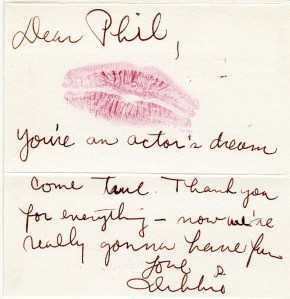 Dear Phil,
you're an actor's dream
come true. Thank you
for everything – now we're
really gonna have fun
Love
Debbie